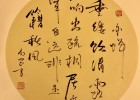 咏蝉
垂緌飲清露流
響出疏桐居
高聲自遠非是
藉秋風